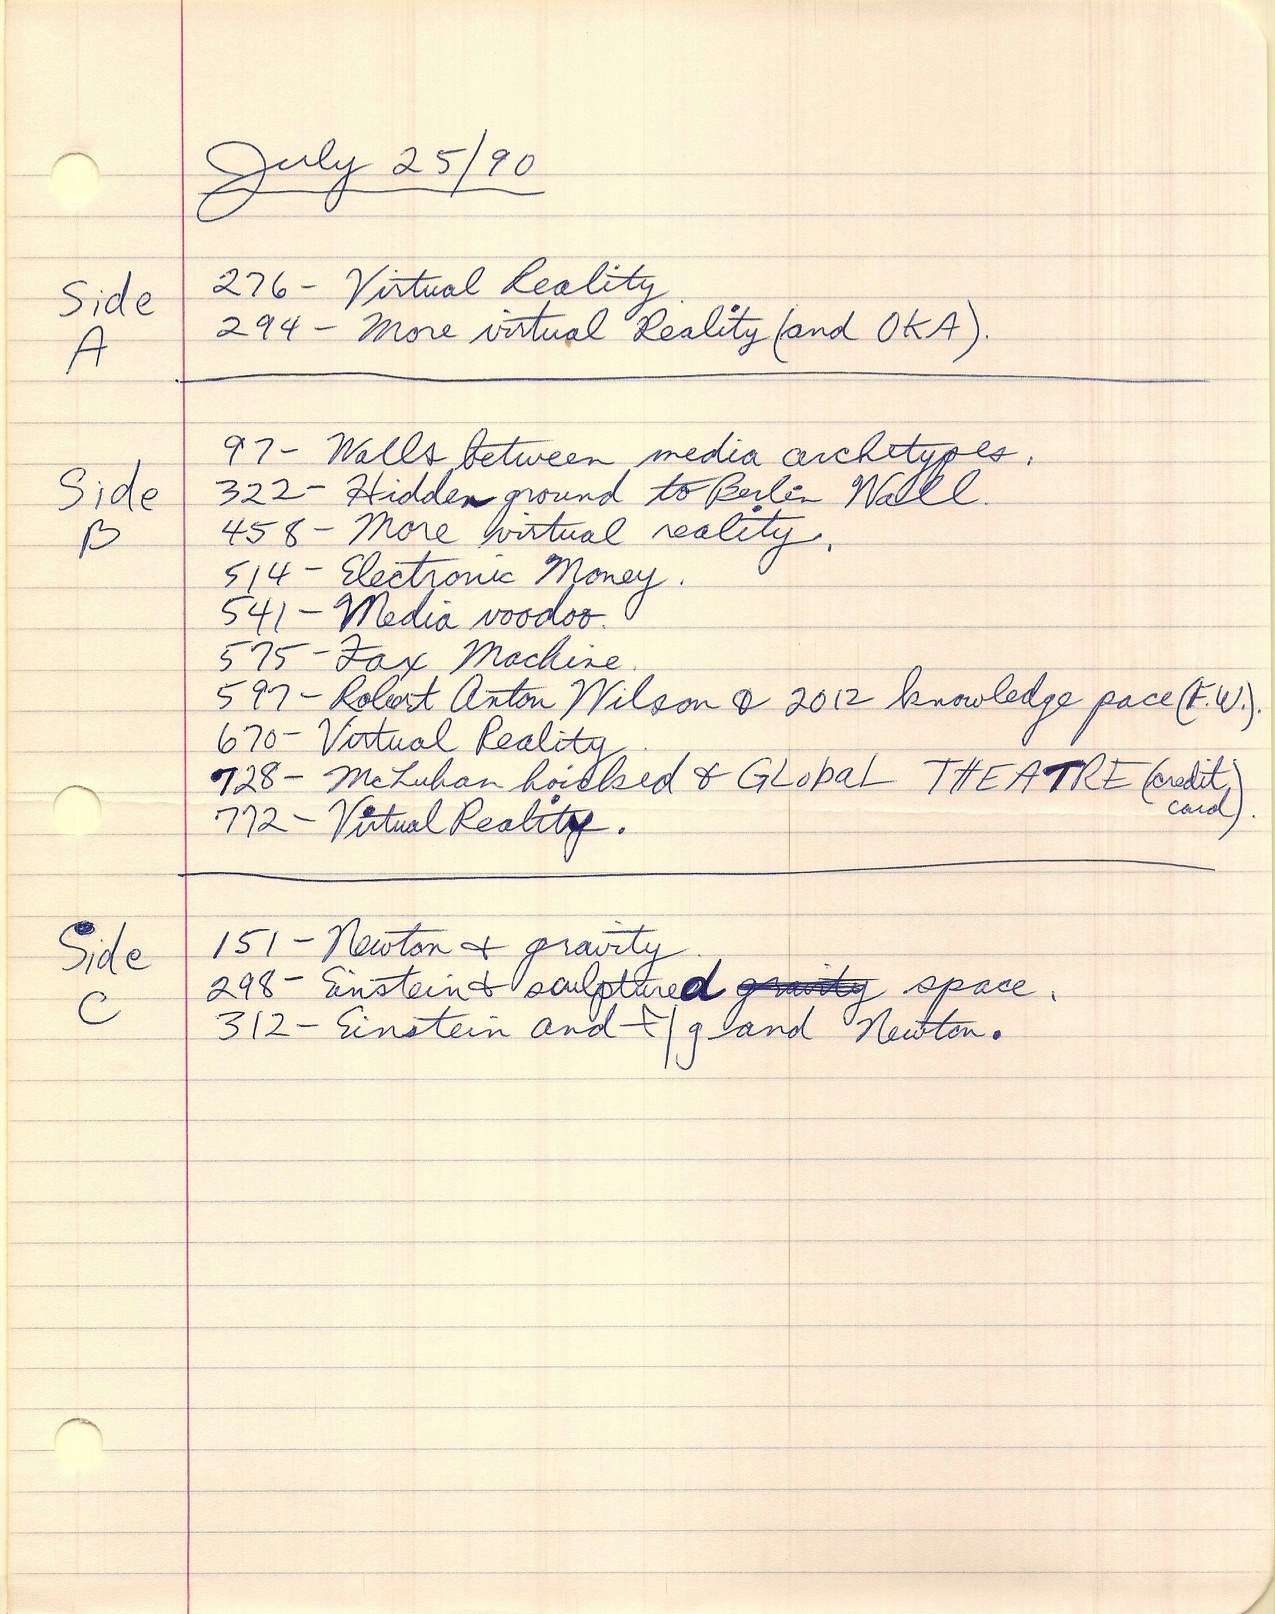 July 25/90
Side A
276- Virtual Reality.
294- More virtual Reality (and OKA).
Side B
97- Walls between media archetypes.
322- Hidden ground to Berlin Wall.
458- More virtual reality.
514- Electronic Money.
541- Media voodoo.
575- Fax Machine.
597- Robert Anton Wilson & 2012 knowledge pace (F.W.).
670- Virtual Reality.
728- McLuhan hoicked & GLObaL THEATRE (credit card).
772- Virtual Reality.
Side C
151- Newton & gravity.
298- Einstein & sculptured gravity space.
312- Einstein and f/g and Newton.